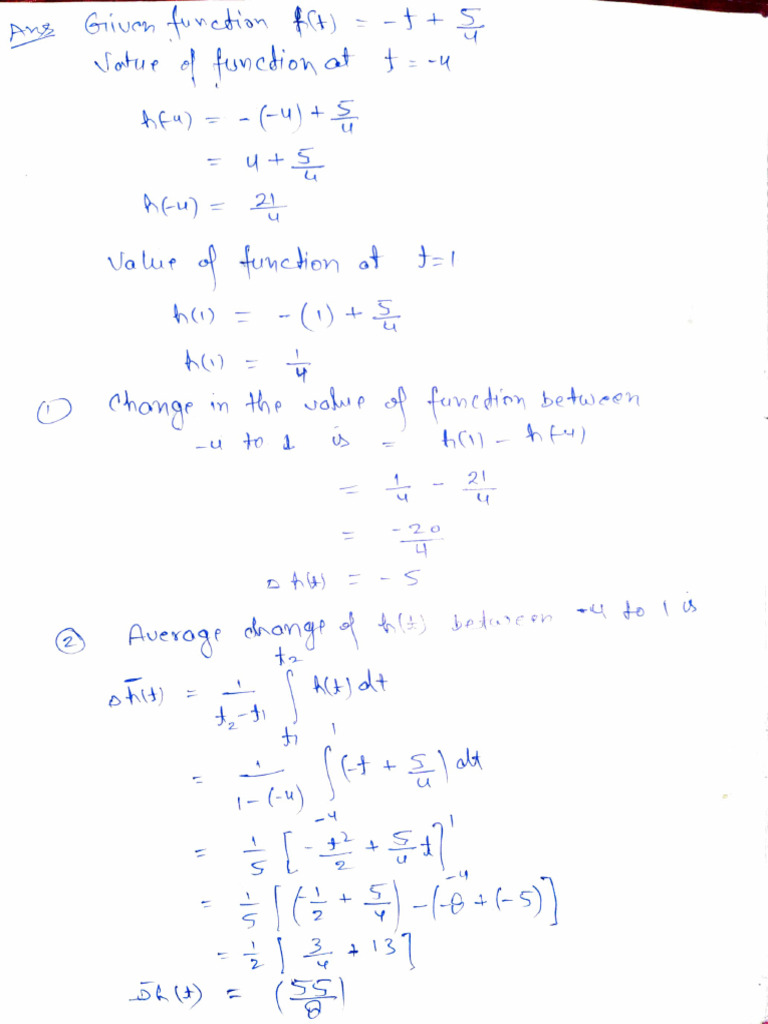 Ans Given function h(t) = -t + 5/4
Value of function at t = -4
h(-4) = -(-4) + 5/4
= 4 + 5/4
h(-4) = 21/4
Value of function at t=1
h(1) = -(1) + 5/4
h(1) = 1/4
① Change in the value of function between
-4 to 1 is = h(1) - h(-4)
= 1/4 - 21/4
= -20/4
Δh(t) = -5
② Average change of h(t) between -4 to 1 is
Δh̄(t) = 1/(t₂-t₁) ∫_{t₁}^{t₂} h(t) dt
= 1/(1-(-4)) ∫_{-4}^{1} (-t + 5/4) dt
= 1/5 [-t²/2 + 5/4 t]_{-4}^{1}
= 1/5 [(-1/2 + 5/4) - (-8 + (-5))]
= 1/2 [3/4 + 13]
Δ̄h(t) = (55/8)